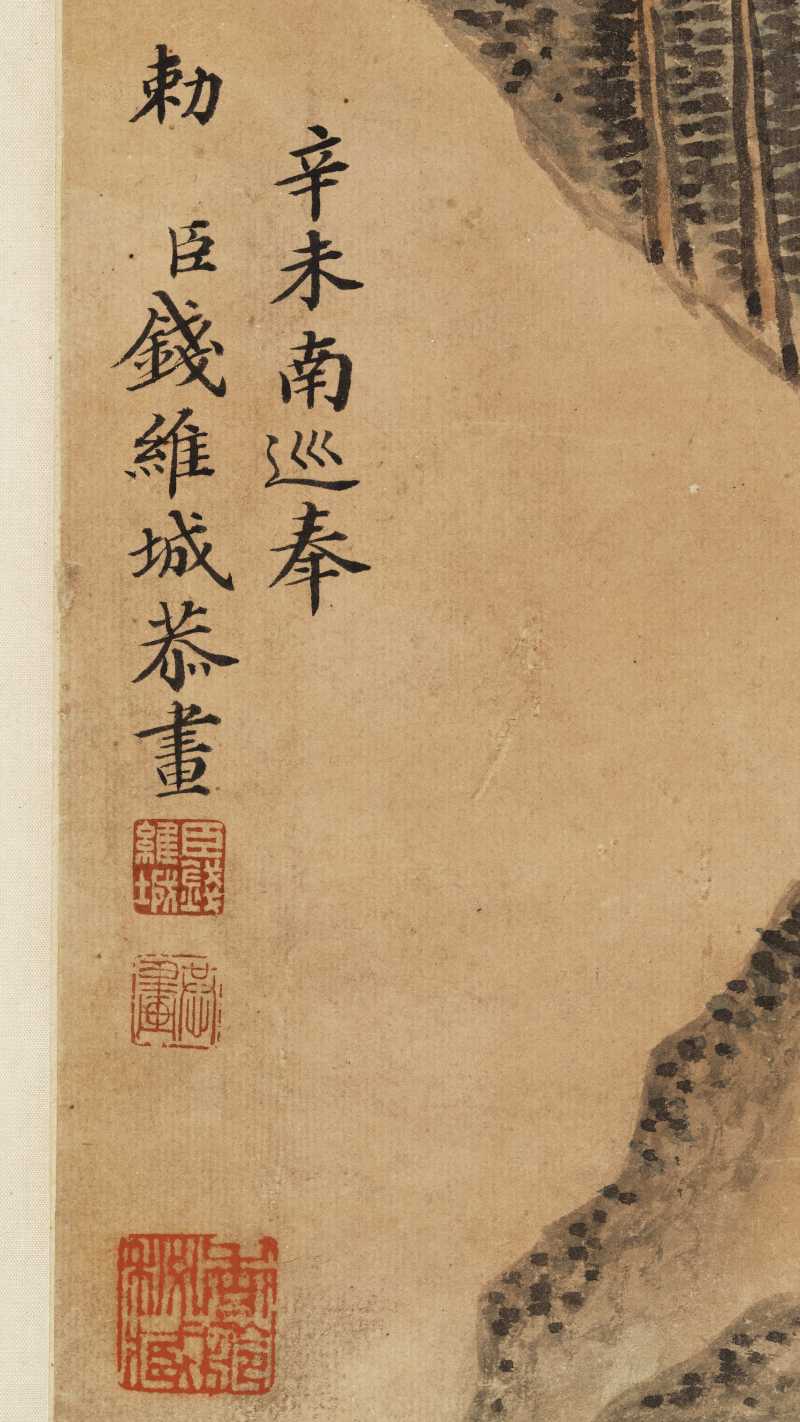 辛未南巡奉
勅 臣錢維城恭畫
臣錢維城
恭畫